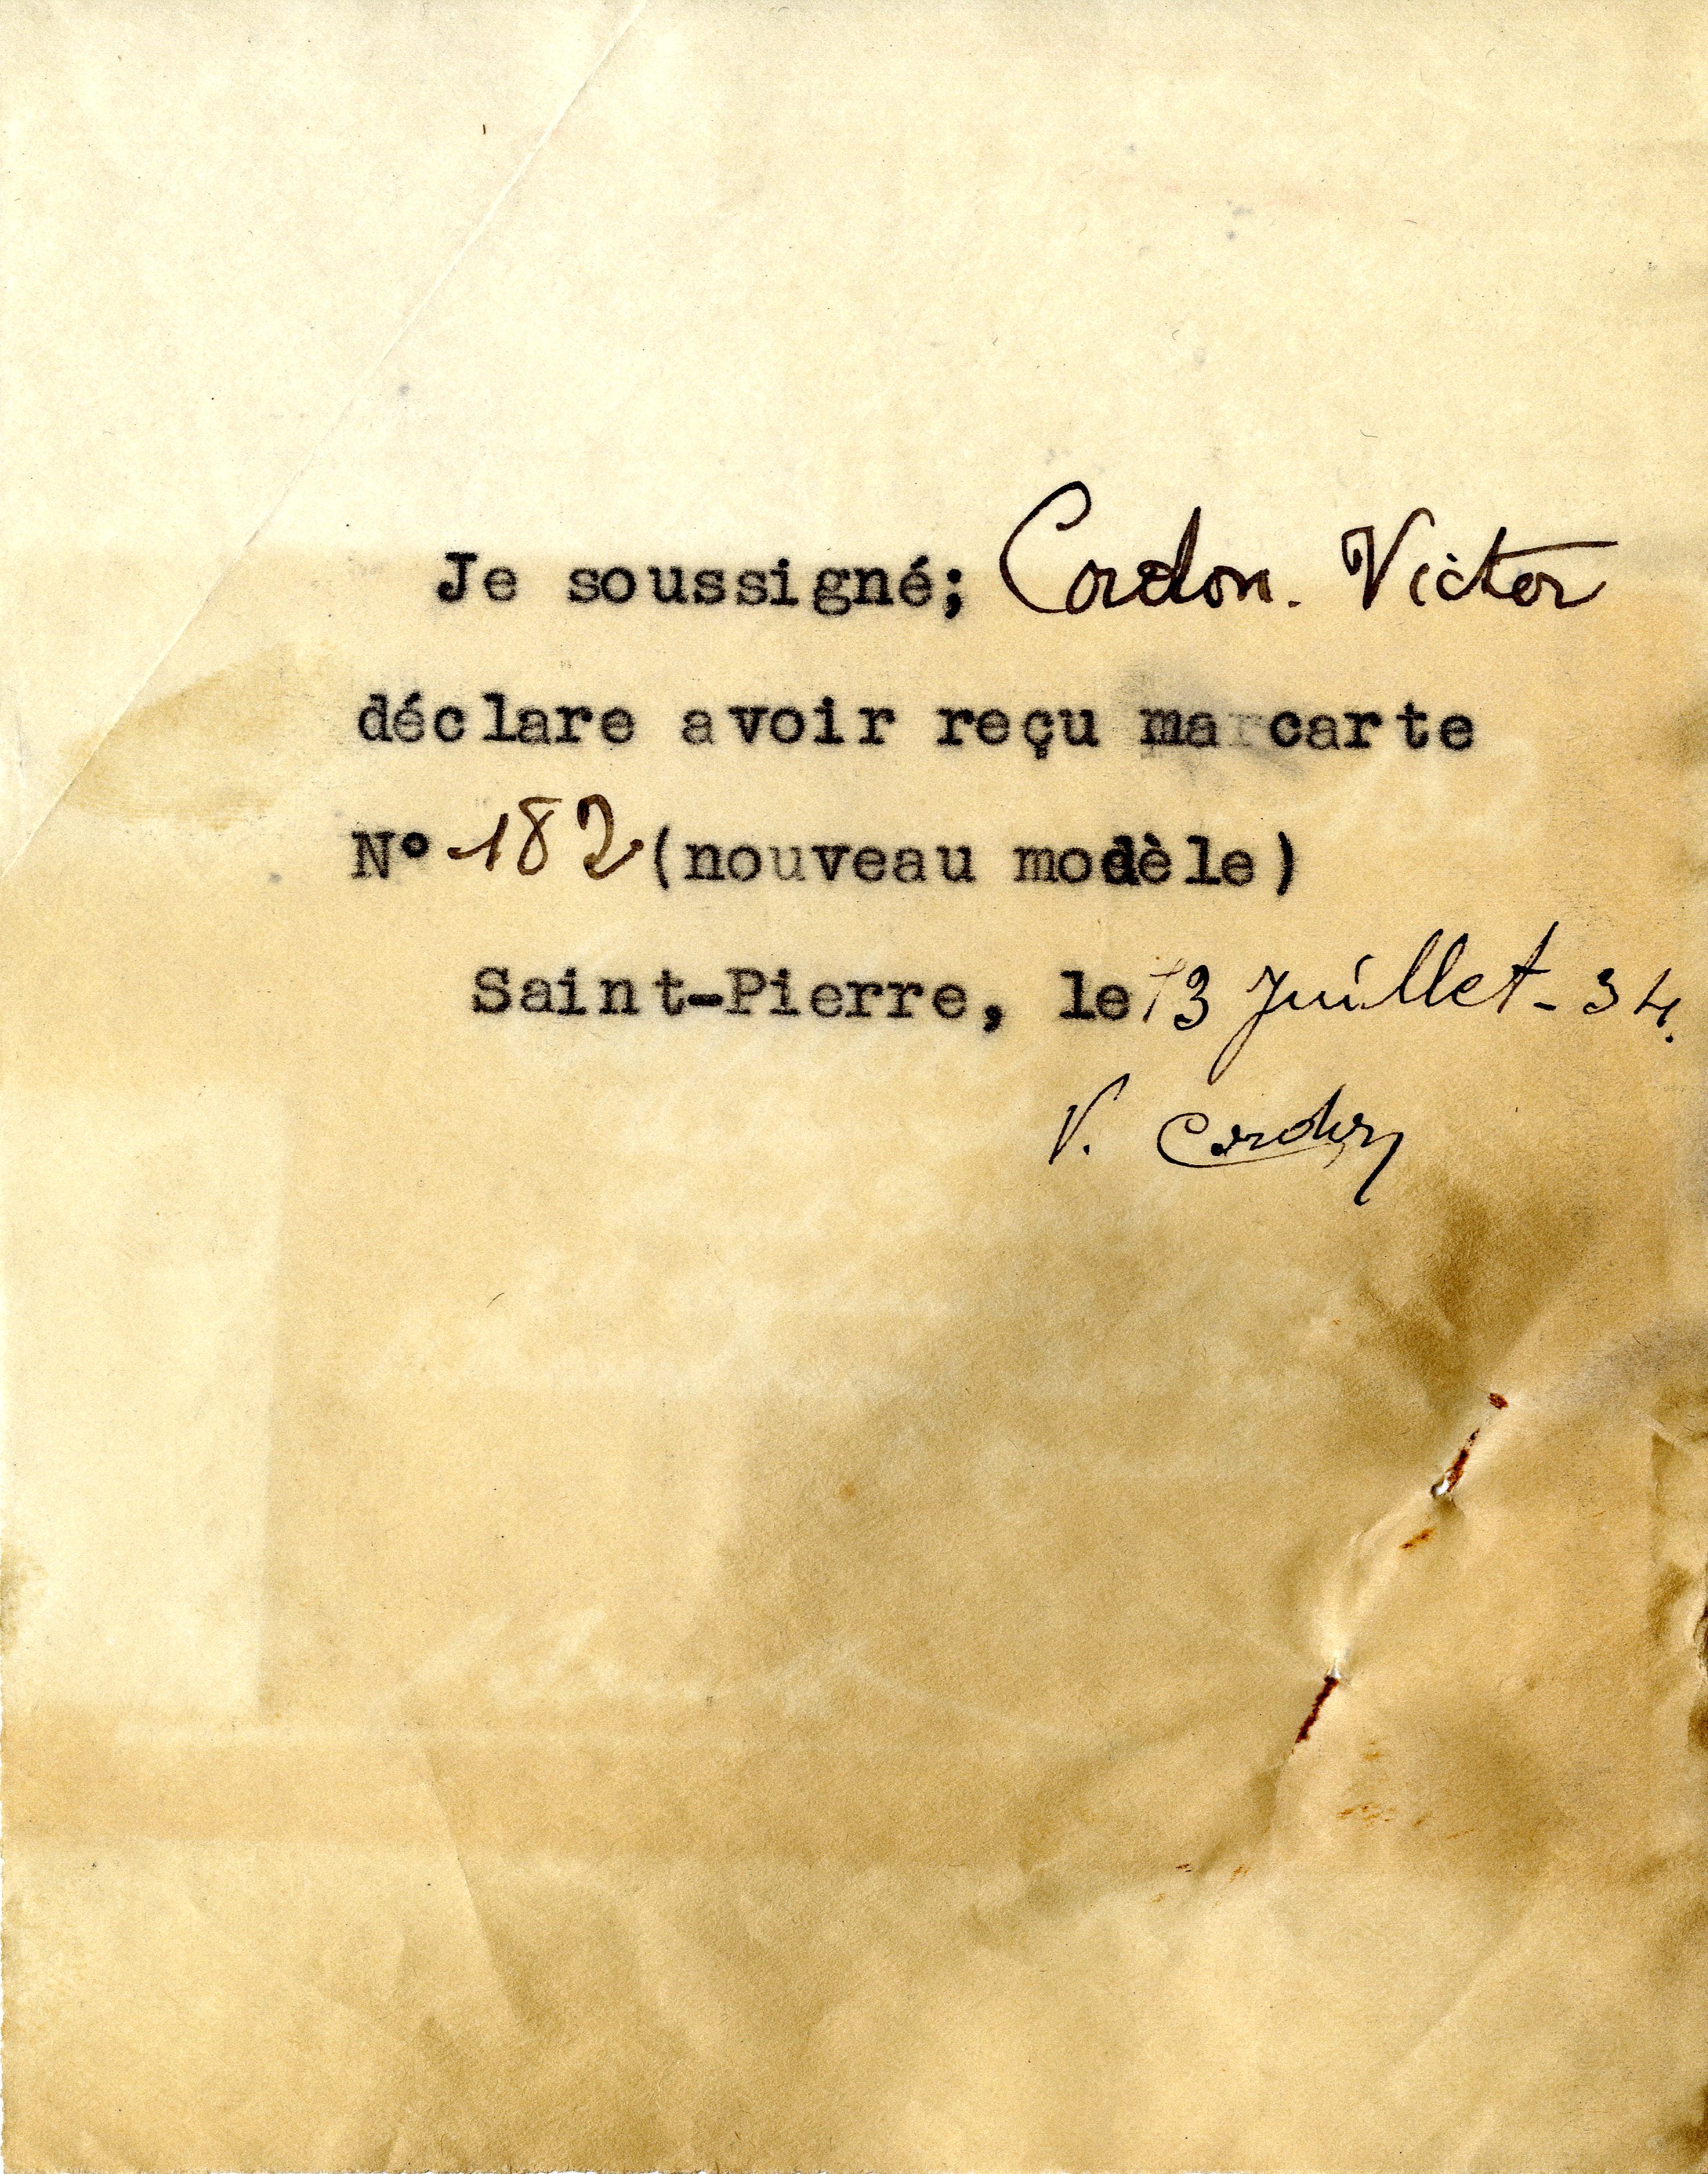 Je soussigné; Cordon. Victor
déclare avoir reçu ma carte
N° 182 (nouveau modèle)
Saint-Pierre, le 13 Juillet - 34.
V. Cordon